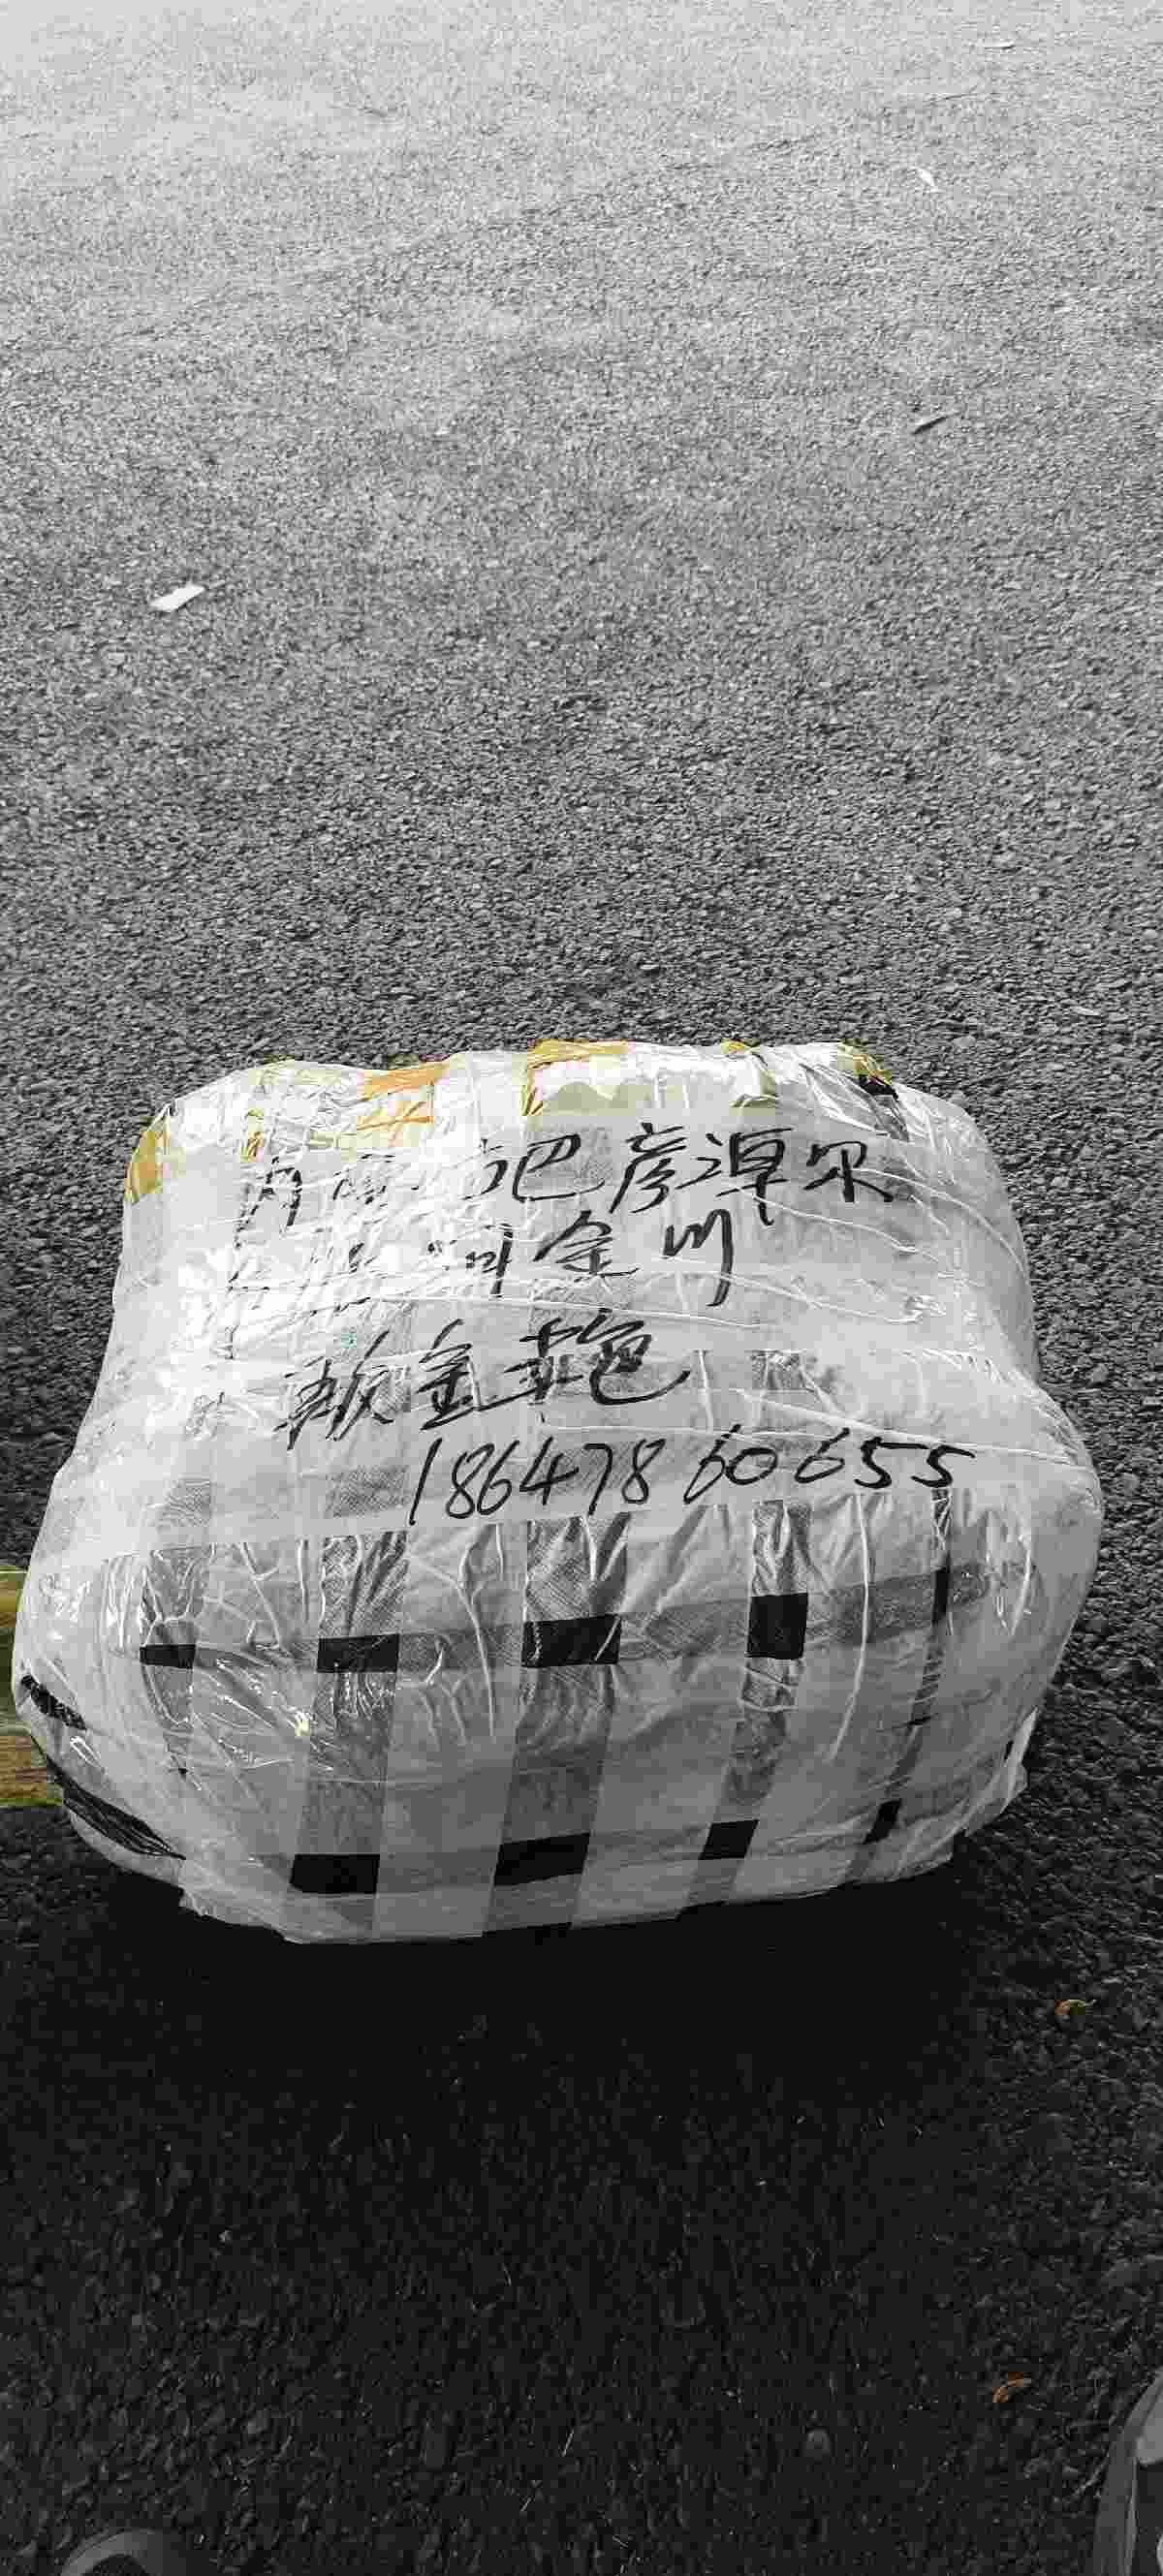 内 巴彦淖尔
金川
敖金艳
18647860655